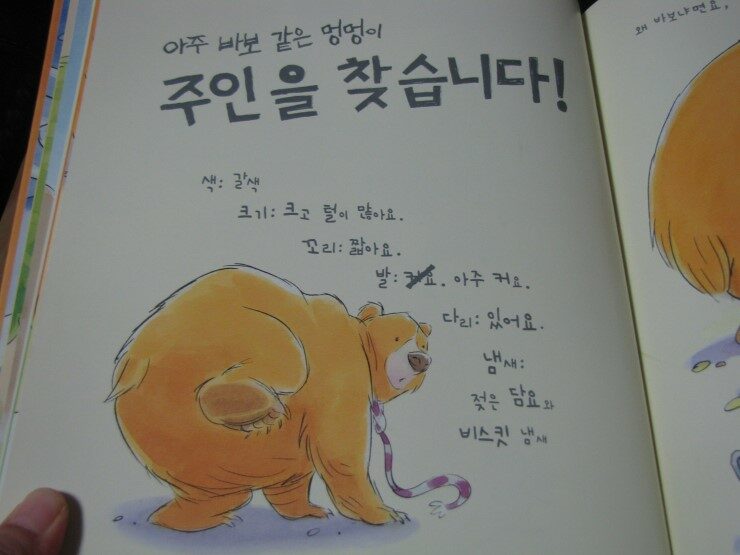 아주 바보 같은 멍멍이
주인을 찾습니다!
왜 바보냐면요,
색: 갈색
크기: 크고 털이 많아요.
꼬리: 짧아요.
발: 커요. 아주 커요.
다리: 있어요.
냄새:
젖은 담요와
비스킷 냄새